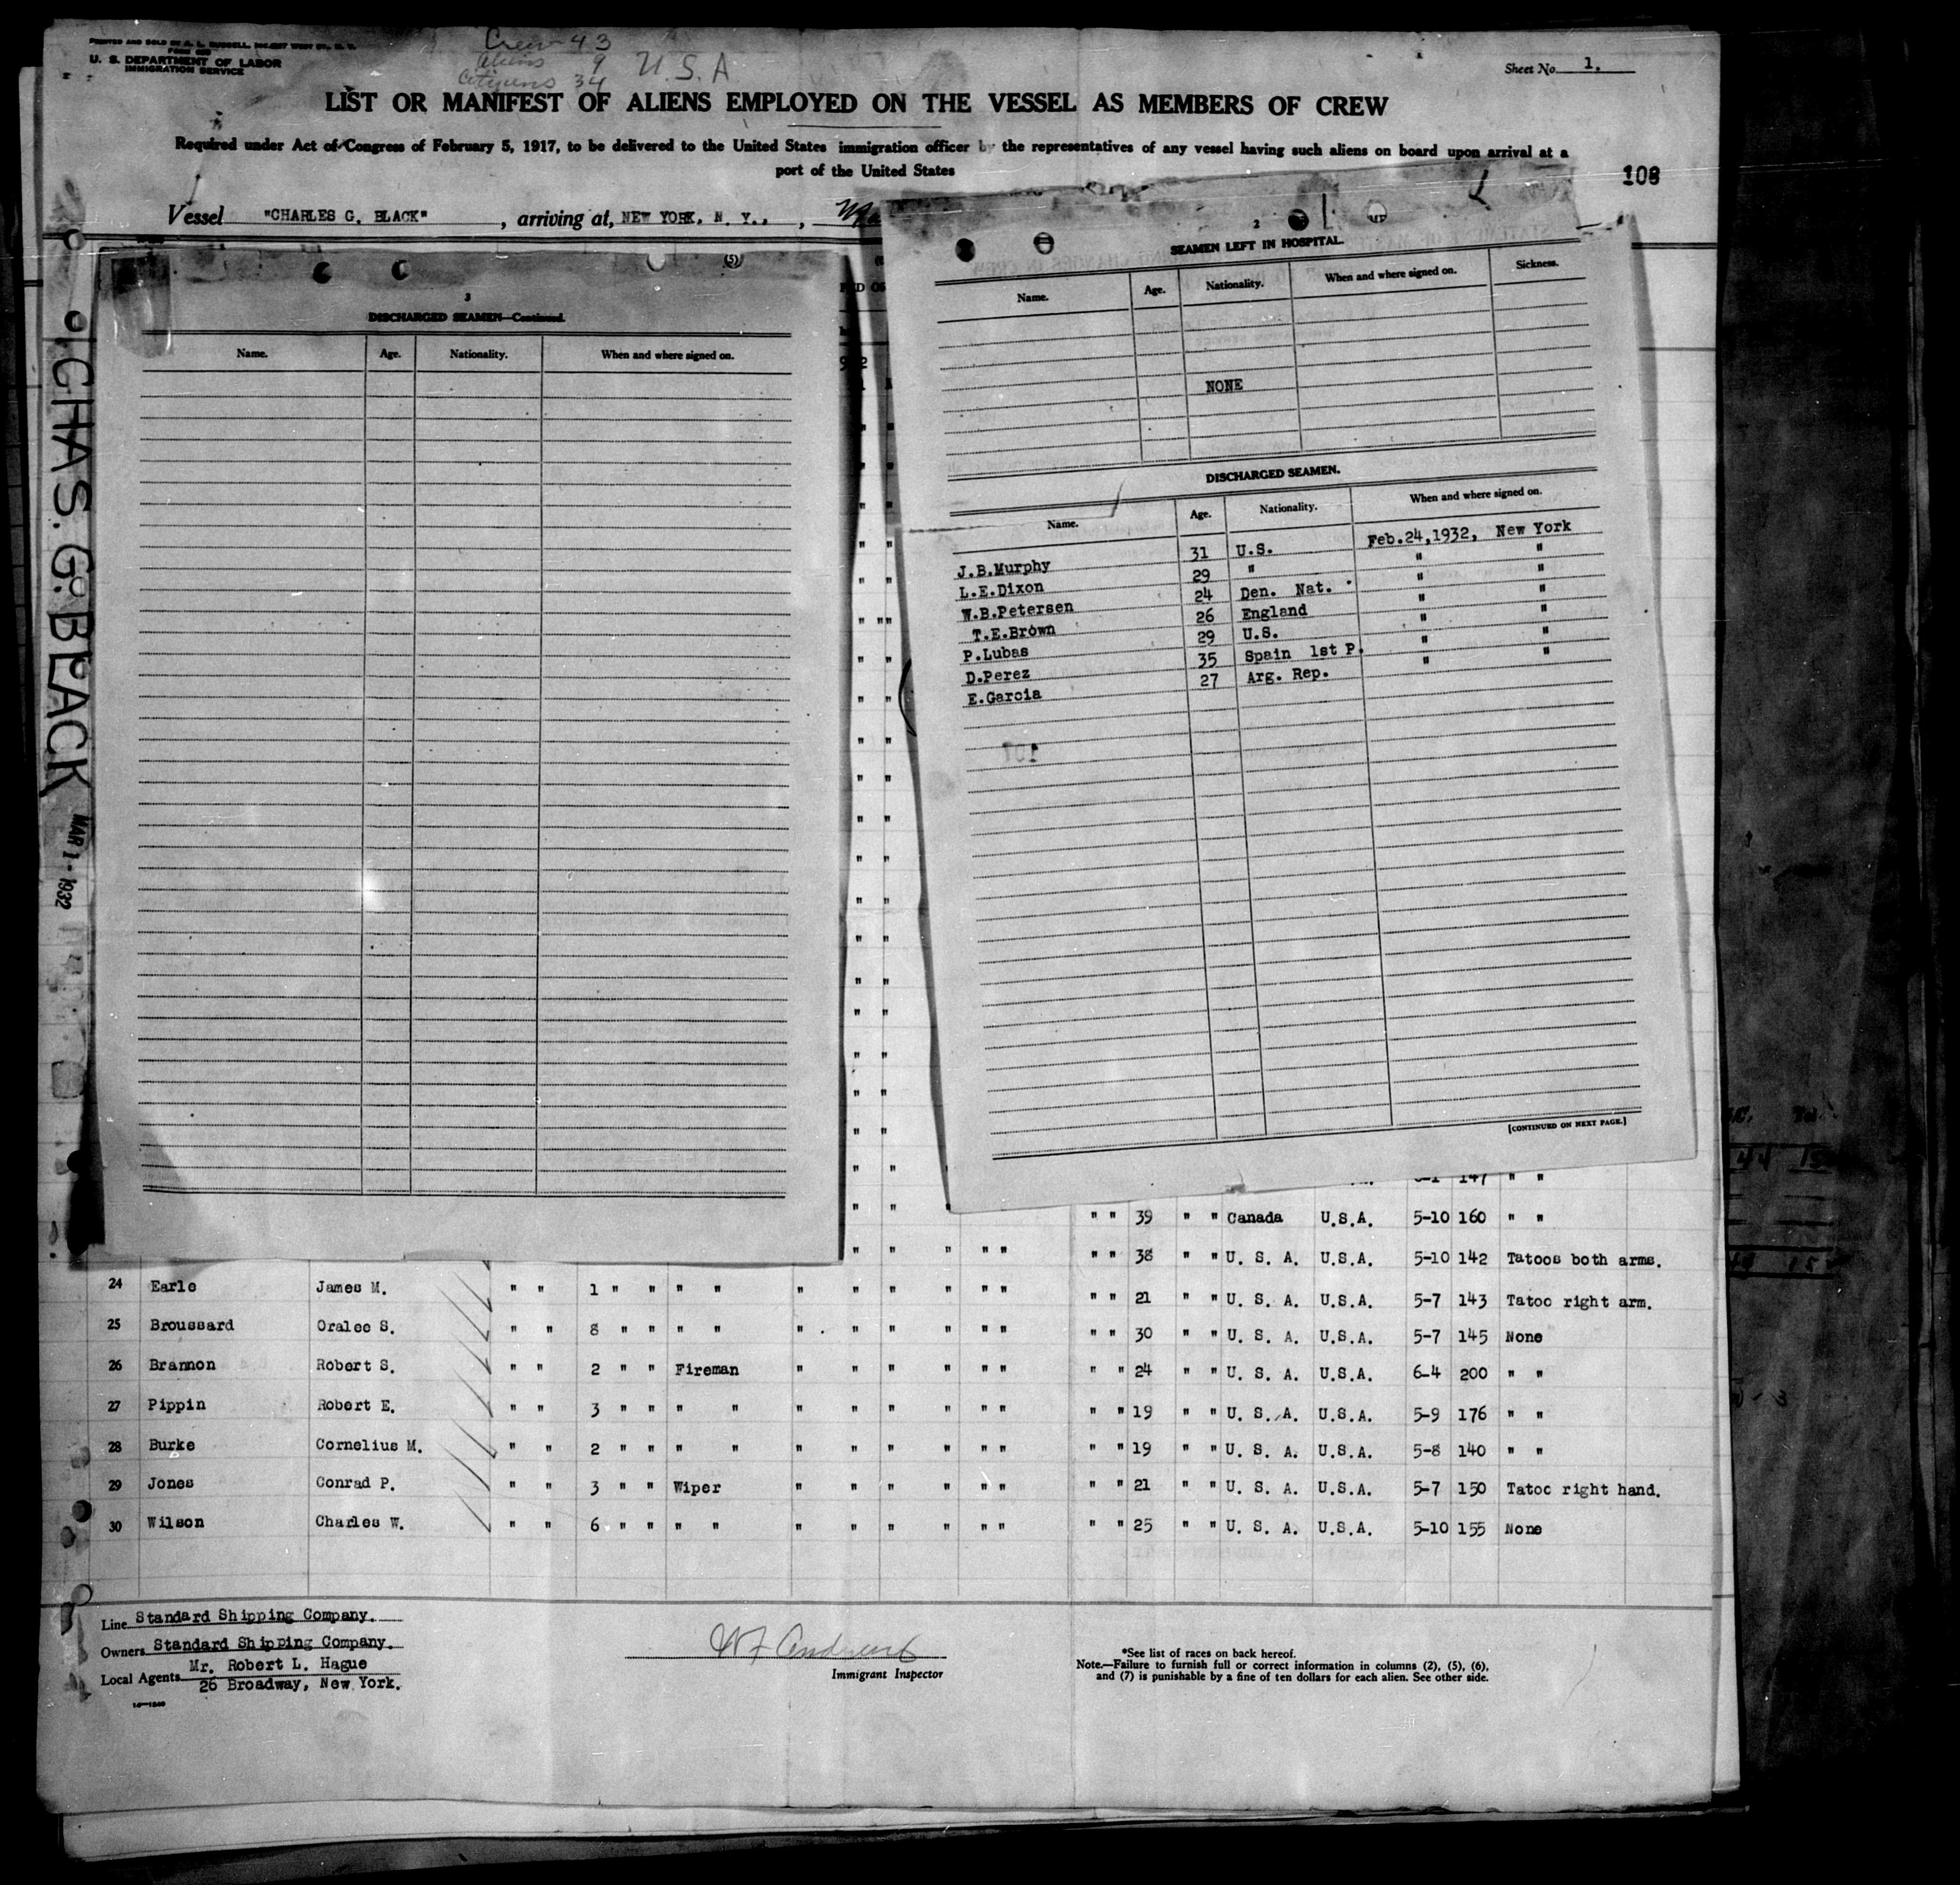 PRINTED AND SOLD BY
U. S. DEPARTMENT OF LABOR
IMMIGRATION SERVICE
Crew 43
Aliens 9
Citizens 34
U.S.A
Sheet No 1.
LIST OR MANIFEST OF ALIENS EMPLOYED ON THE VESSEL AS MEMBERS OF CREW
Required under Act of Congress of February 5, 1917, to be delivered to the United States immigration officer by the representatives of any vessel having such aliens on board upon arrival at a
port of the United States
108
Vessel "CHARLES G. BLACK" , arriving at, NEW YORK, N. Y., ,
CHAS. G. BLACK
MAR 1 - 1932
(5)
3
DISCHARGED SEAMEN—Continued.
Name. Age. Nationality. When and where signed on.
2
SEAMEN LEFT IN HOSPITAL.
Name. Age. Nationality. When and where signed on. Sickness.
NONE
DISCHARGED SEAMEN.
Name. Age. Nationality. When and where signed on.
J.B.Murphy 31 U.S. Feb.24,1932, New York
L.E.Dixon 29 " " "
W.B.Petersen 24 Den. Nat. " "
T.E.Brown 26 England " "
P.Lubas 29 U.S. " "
D.Perez 35 Spain 1st P. " "
E.Garcia 27 Arg. Rep. " "
[CONTINUED ON NEXT PAGE.]
147 " "
" " 39 " " Canada U.S.A. 5-10 160 " "
" " " " " " " 38 " " U. S. A. U.S.A. 5-10 142 Tatoos both arms.
24 Earle James M. " " 1 " " " " " " " " " " " " 21 " " U. S. A. U.S.A. 5-7 143 Tatoo right arm.
25 Broussard Oralee S. " " 8 " " " " " " " " " " " " 30 " " U. S. A. U.S.A. 5-7 145 None
26 Brannon Robert S. " " 2 " " Fireman " " " " " " " " 24 " " U. S. A. U.S.A. 6-4 200 " "
27 Pippin Robert E. " " 3 " " " " " " " " " " " " 19 " " U. S. A. U.S.A. 5-9 176 " "
28 Burke Cornelius M. " " 2 " " " " " " " " " " " " 19 " " U. S. A. U.S.A. 5-8 140 " "
29 Jones Conrad P. " " 3 " " Wiper " " " " " " " " 21 " " U. S. A. U.S.A. 5-7 150 Tatoo right hand.
30 Wilson Charles W. " " 6 " " " " " " " " " " " " 25 " " U. S. A. U.S.A. 5-10 155 None
Line Standard Shipping Company.
Owners Standard Shipping Company.
Local Agents Mr. Robert L. Hague
26 Broadway, New York.
Immigrant Inspector
*See list of races on back hereof.
Note.—Failure to furnish full or correct information in columns (2), (5), (6),
and (7) is punishable by a fine of ten dollars for each alien. See other side.